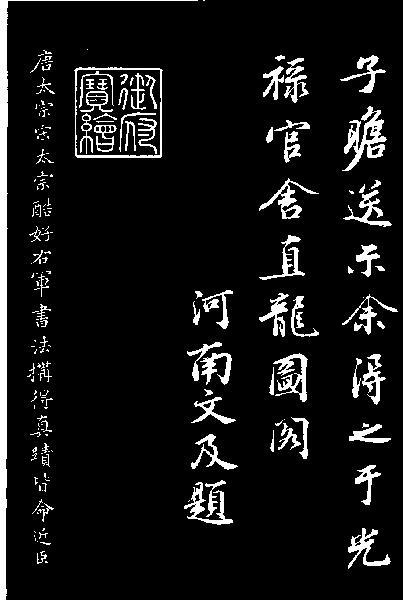 子瞻送示余得之于光
禄官舍直龍圖閣
河南文及題
御府寶繪
唐太宗宋太宗酷好右軍書法搆得真蹟皆命近臣